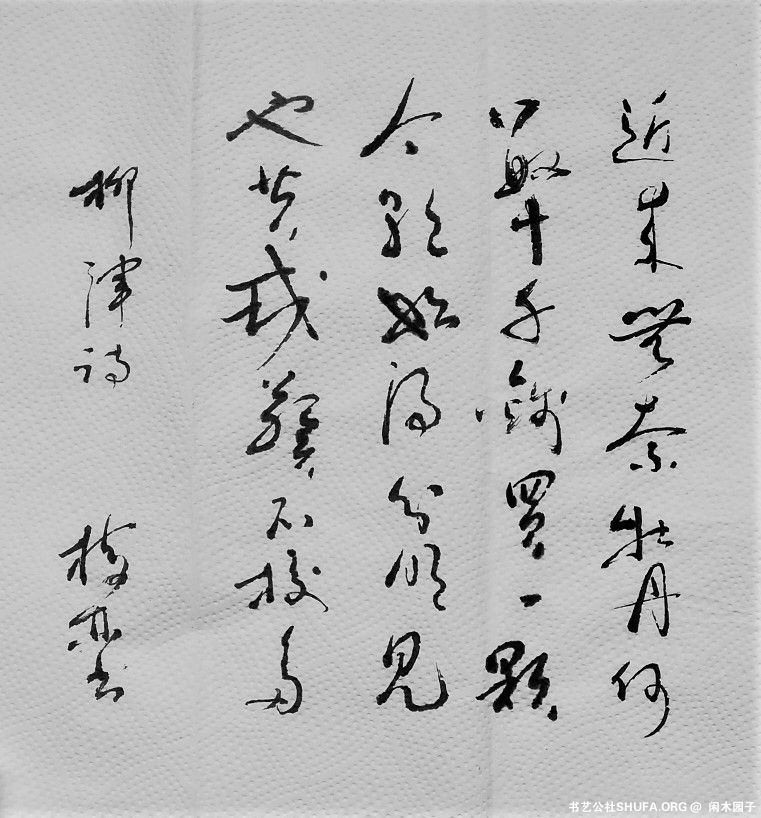 近来無奈牡丹何
數十千錢買一顆
今朝始得分明見
也共戎葵不校多
柳渾诗
书
书艺公社SHUFA.ORG @ 闲木园子